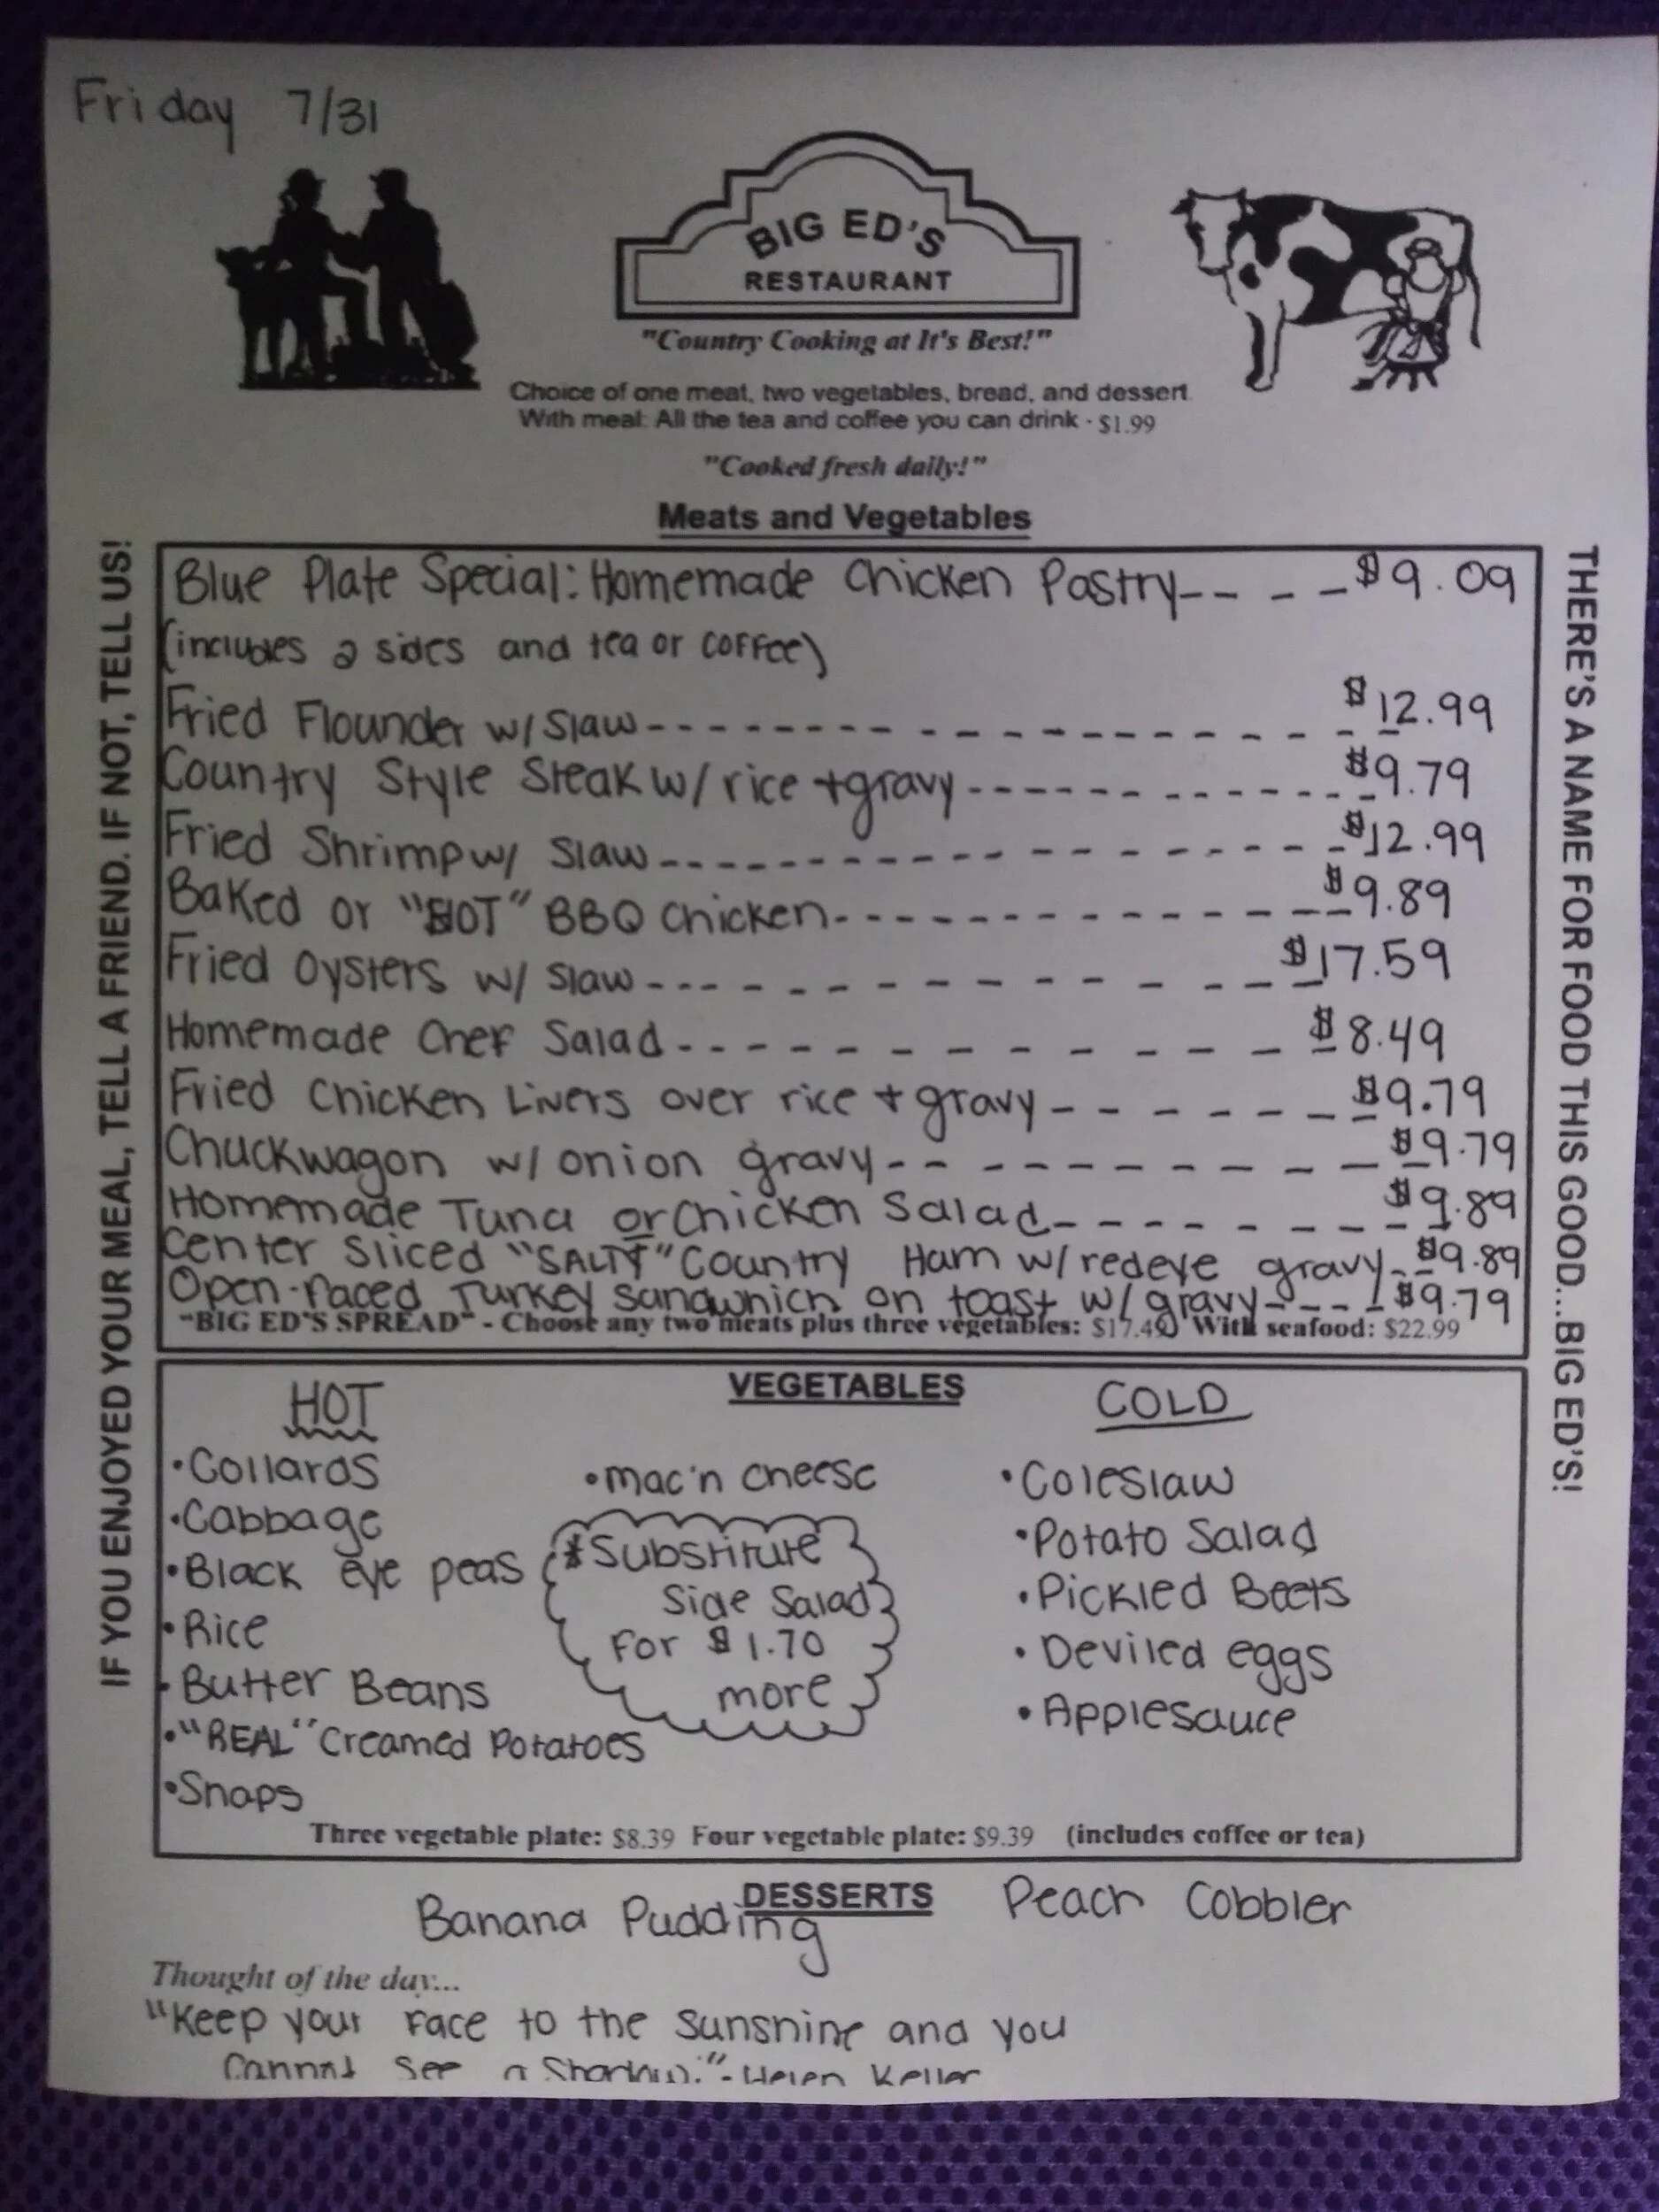 Friday 7/31
BIG ED'S
RESTAURANT
"Country Cooking at It's Best!"
Choice of one meat, two vegetables, bread, and dessert.
With meal: All the tea and coffee you can drink - $1.99
"Cooked fresh daily!"
Meats and Vegetables
IF YOU ENJOYED YOUR MEAL, TELL A FRIEND. IF NOT, TELL US!
Blue Plate Special: Homemade Chicken Pastry---- $9.09
(includes 2 sides and tea or coffee)
Fried Flounder w/ Slaw---- $12.99
Country Style Steak w/ rice + gravy---- $9.79
Fried Shrimp w/ Slaw---- $12.99
Baked or "HOT" BBQ Chicken---- $9.89
Fried Oysters w/ Slaw---- $17.59
Homemade Chef Salad---- $8.49
Fried Chicken Livers over rice + gravy---- $9.79
Chuckwagon w/ onion gravy---- $9.79
Homemade Tuna or Chicken Salad---- $9.89
Center Sliced "SALTY" Country Ham w/ redeye gravy-- $9.89
Open-faced Turkey sandwhich on toast w/ gravy---- $9.79
"BIG ED'S SPREAD" - Choose any two meats plus three vegetables: $17.49 With seafood: $22.99
THERE'S A NAME FOR FOOD THIS GOOD...BIG ED'S!
VEGETABLES
HOT
•Collards
•Cabbage
•Black eye peas
•Rice
•Butter Beans
•"REAL" Creamed Potatoes
•Snaps
•Mac'n Cheese
*Substitute
Side Salad
For $1.70
more
COLD
•Coleslaw
•Potato Salad
•Pickled Beets
•Deviled eggs
•Applesauce
Three vegetable plate: $8.39 Four vegetable plate: $9.39 (includes coffee or tea)
DESSERTS
Banana Pudding Peach Cobbler
Thought of the day...
"Keep your face to the sunshine and you
Cannot see a Shadow." - Helen Keller